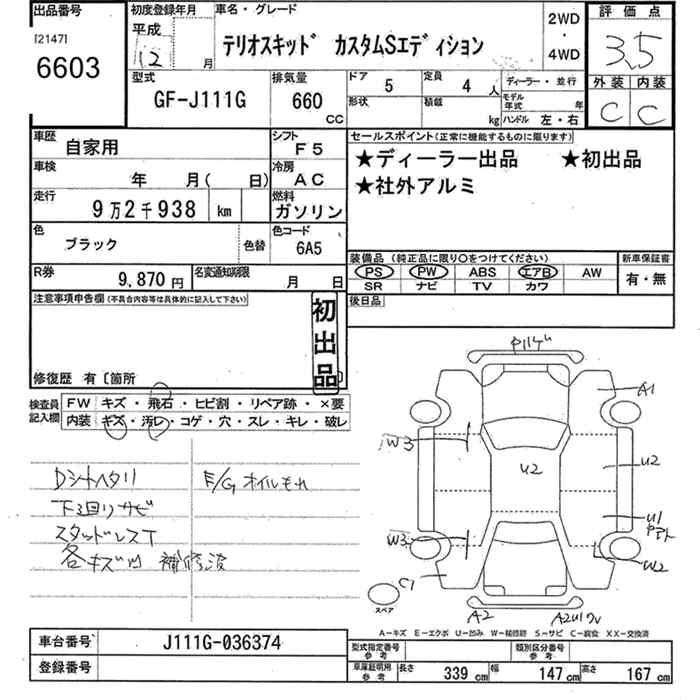 出品番号 初度登録年月 車名・グレード 2WD・4WD 評価点
[2147] 平成 テリオスキッド カスタムSエディション 3.5
6603 12 月
型式 排気量 ドア 5 定員 4人 ディーラー・並行 外装 内装
GF-J111G 660 CC 形状 積載 kg モデル年式 年 C C
ハンドル 左・右
車歴 自家用 シフト F5 セールスポイント(正常に機能するものに限ります)
車検 年 月( 日) 冷房 AC ★ディーラー出品 ★初出品
走行 9万2千938 km 燃料 ガソリン ★社外アルミ
色 ブラック 色替 色コード 6A5
装備品(純正品に限り○をつけてください) 新車保証書
PS PW ABS エアB AW 有・無
R券 9,870円 名変通知期限 月 日 SR ナビ TV カワ
注意事項申告欄(不具合内容等は具体的に記入して下さい) 後日品
初出品
修復歴 有〔箇所 〕
検査員記入欄 FW キズ・飛石・ヒビ割・リペア跡・×要
内装 キズ・汚レ・コゲ・穴・スレ・キレ・破レ
Dシートヘタリ E/Gオイルもれ
下回りサビ
スタッドレスT
各キズ凹 補修波
A1
W3
U2
U2
U1
W3
W2
C1
スペア
A2
A-キズ E-エクボ U-凹み W-補修跡 S-サビ C-腐食 XX-交換済
車台番号 J111G-036374 型式指定番号 参考 類別区分番号 参考
登録番号 車庫証明用 参考 長さ 339cm 幅 147cm 高さ 167cm